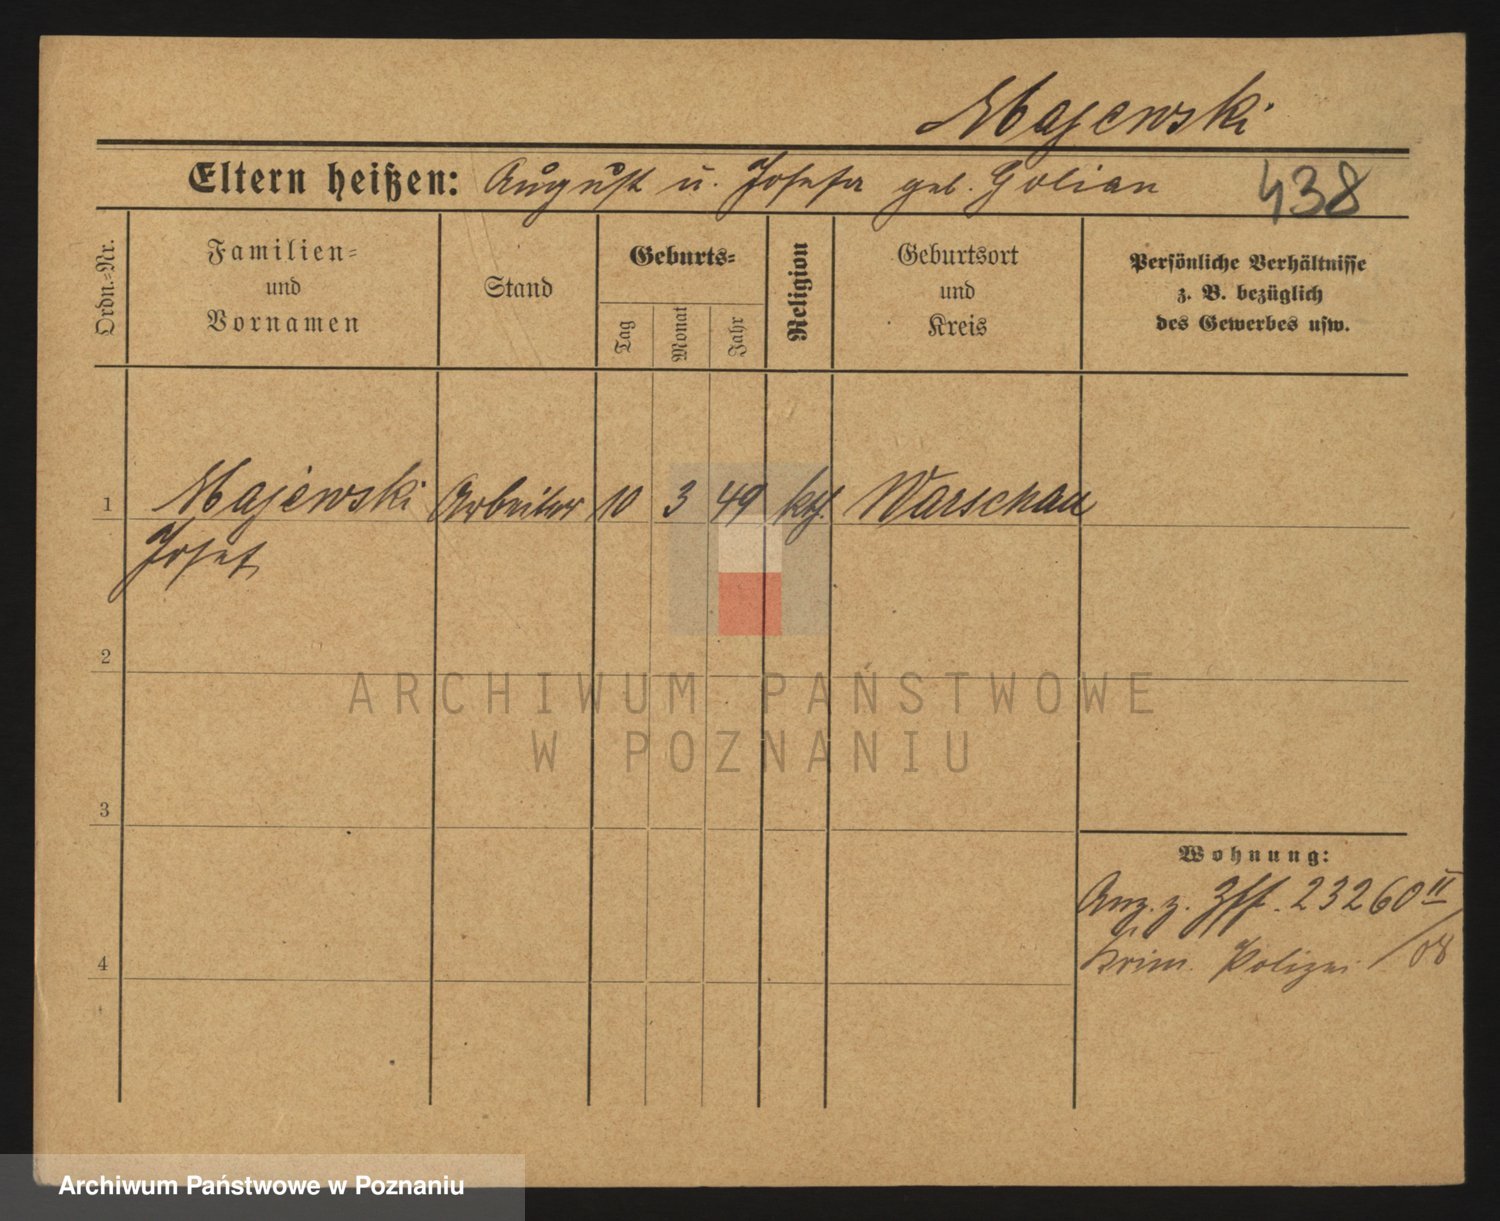 Majewski
Eltern heißen: August u. Josefa geb. Golian
438
Ordn.=Nr.
Familien=
und
Vornamen
Stand
Geburts=
Tag
Monat
Jahr
Religion
Geburtsort
und
Kreis
Persönliche Verhältnisse
z. B. bezüglich
des Gewerbes usw.
1 Majewski Arbeiter 10 3 49 kth. Warschau
Josef
2
ARCHIWUM PAŃSTWOWE
W POZNANIU
3
Wohnung:
Anz. z. 23260 II
4
Krim. Polizei /08
Archiwum Państwowe w Poznaniu